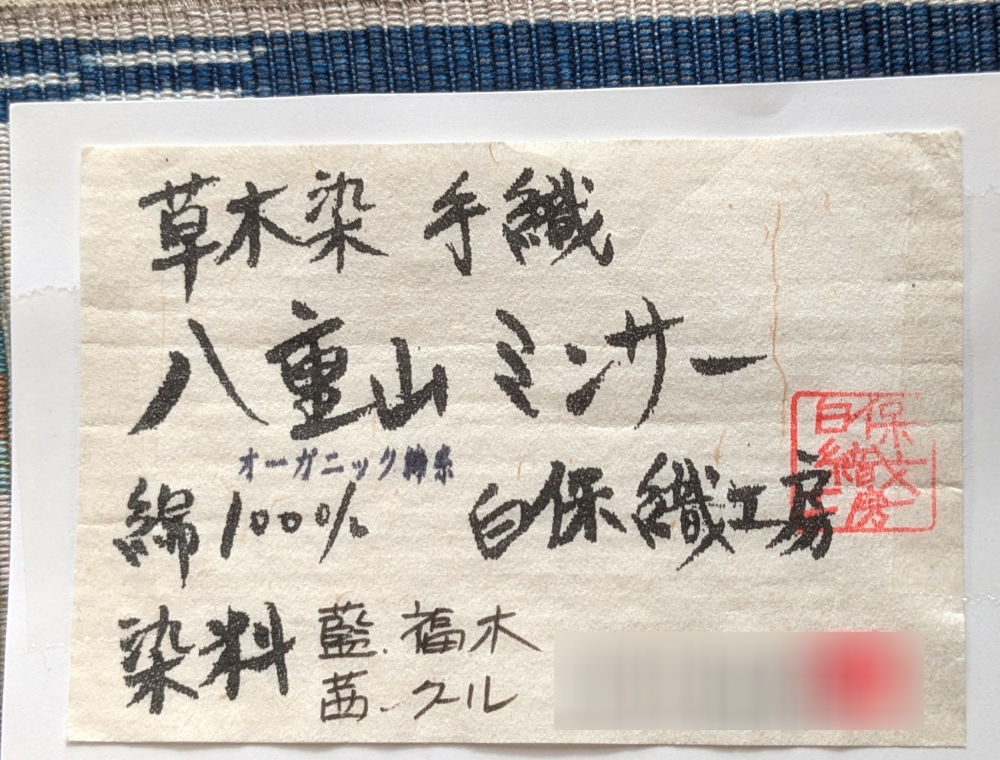 草木染 手織
八重山 ミンサー
オーガニック綿糸
綿100%　白保織工房
白保
織
工房
染料 藍.福木
茜.クール